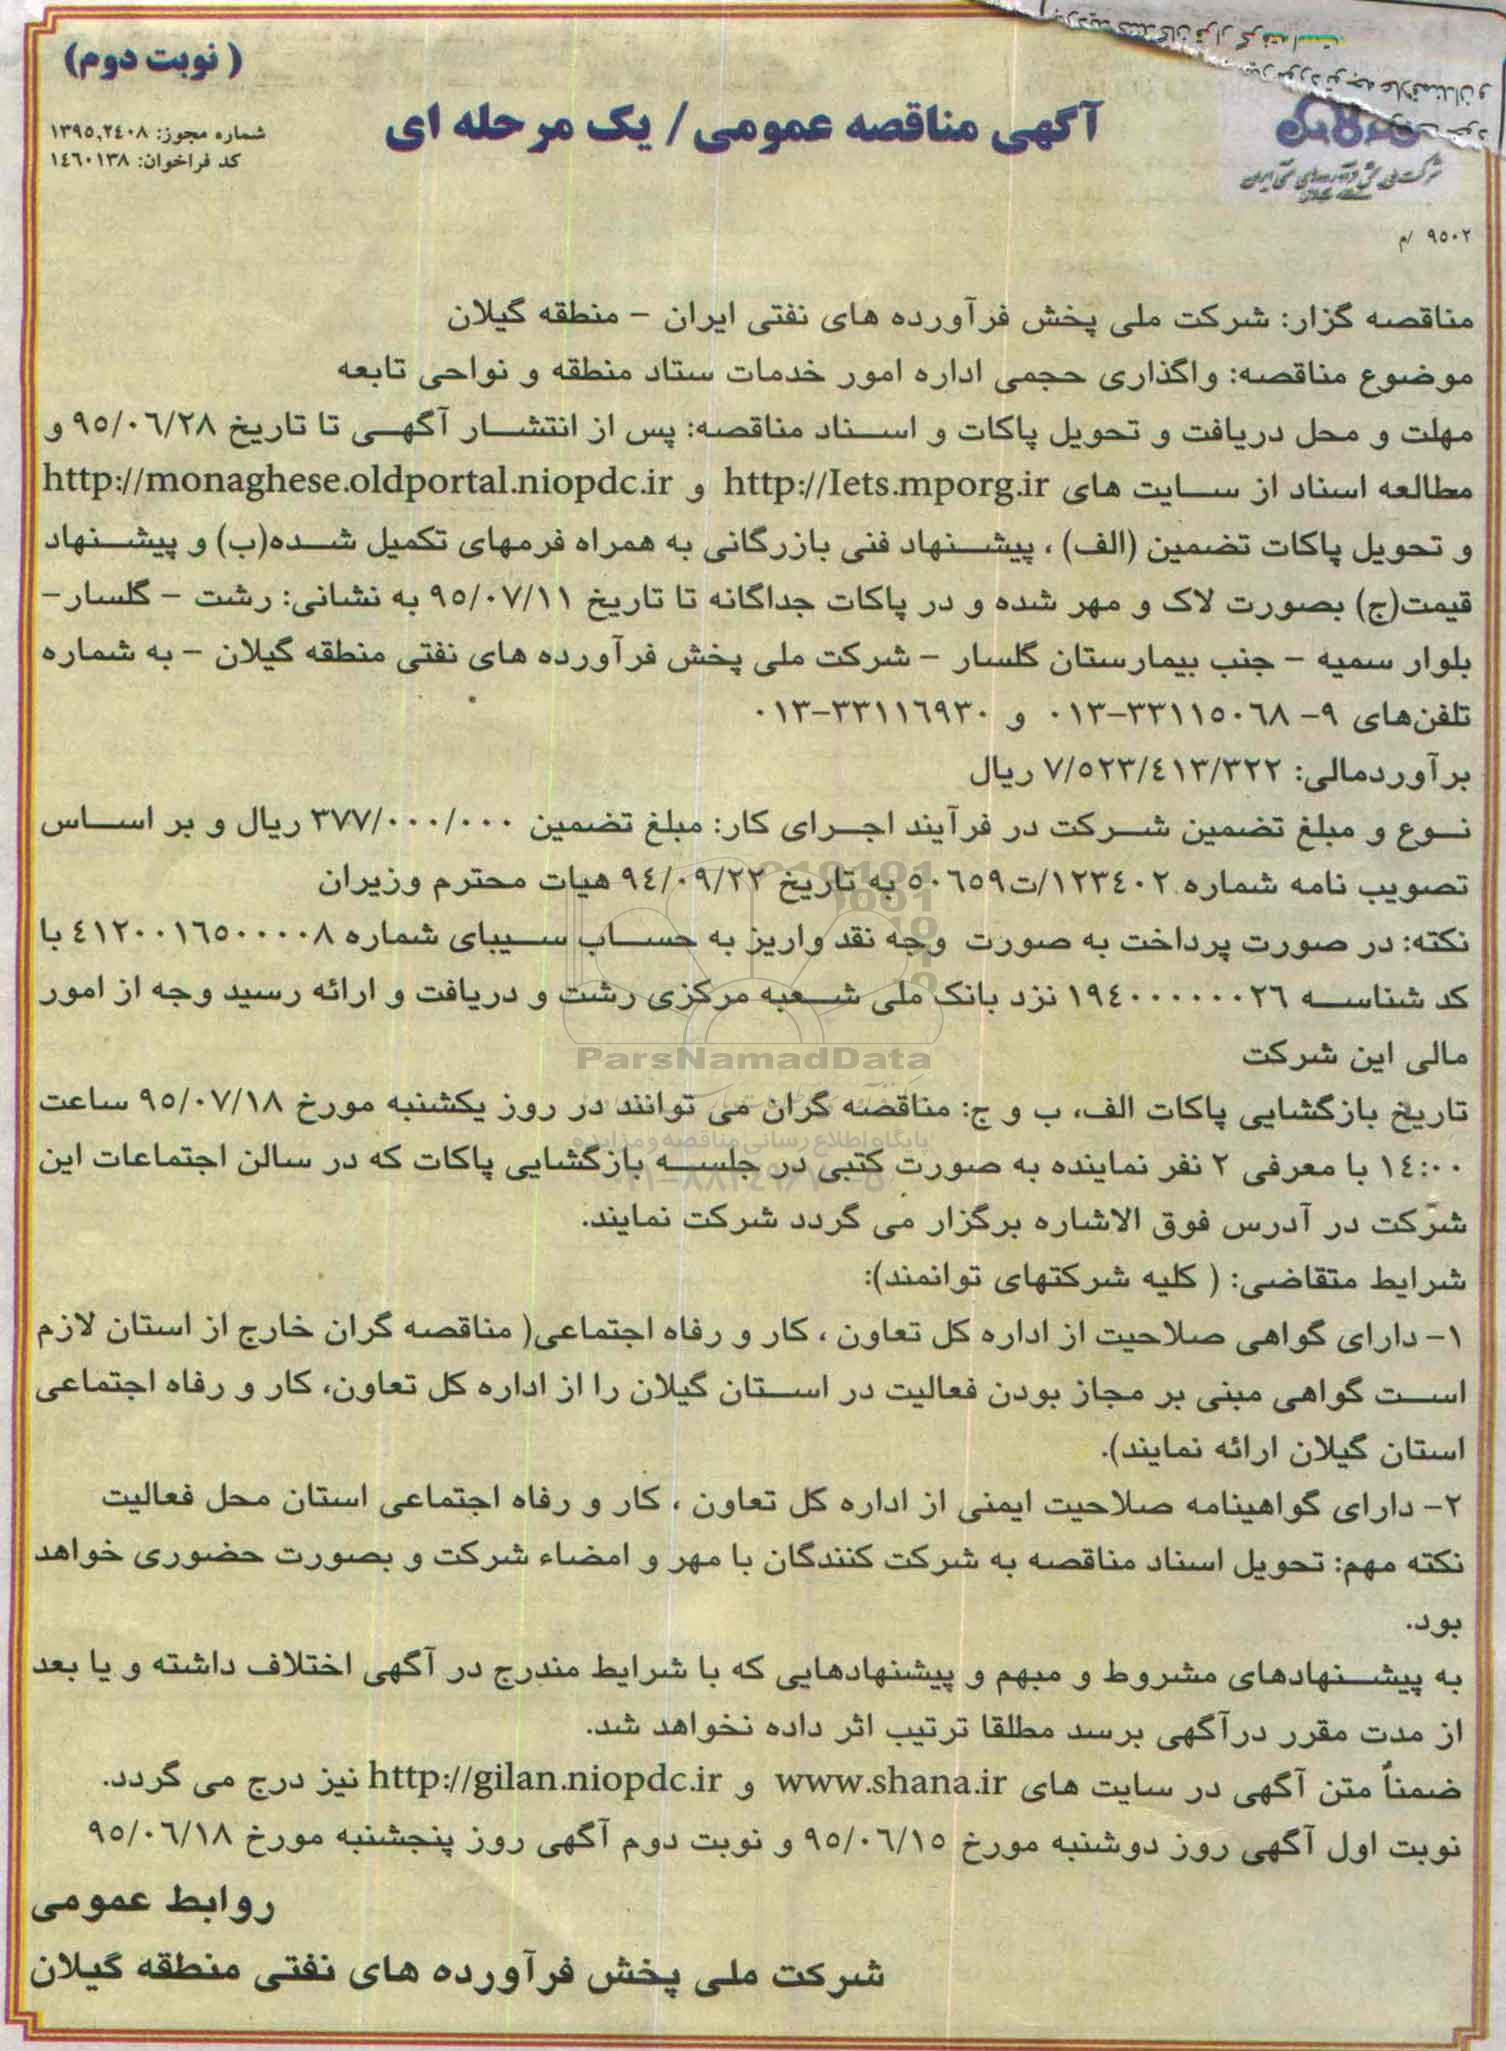 (نوبت دوم)
آگهی مناقصه عمومی / یک مرحله ای
شماره مجوز: ۱۳۹۵,۲۴۰۸
کد فراخوان: ۱٤٦۰۱۳۸
شرکت ملی پخش فرآورده‌های نفتی ایران
۹۵۰۲ /م
مناقصه گزار: شرکت ملی پخش فرآورده های نفتی ایران – منطقه گیلان
موضوع مناقصه: واگذاری حجمی اداره امور خدمات ستاد منطقه و نواحی تابعه
مهلت و محل دریافت و تحویل پاکات و اسناد مناقصه: پس از انتشار آگهی تا تاریخ ۹۵/۰٦/۲۸ و
مطالعه اسناد از سایت های http://Iets.mporg.ir و http://monaghese.oldportal.niopdc.ir
و تحویل پاکات تضمین (الف) ، پیشنهاد فنی بازرگانی به همراه فرمهای تکمیل شده(ب) و پیشنهاد
قیمت(ج) بصورت لاک و مهر شده و در پاکات جداگانه تا تاریخ ۹۵/۰۷/۱۱ به نشانی: رشت – گلسار–
بلوار سمیه – جنب بیمارستان گلسار – شرکت ملی پخش فرآورده های نفتی منطقه گیلان – به شماره
تلفن‌های ۹- ۳۳۱۱۵۰٦۸-۰۱۳ و ۳۳۱۱٦۹۳۰-۰۱۳
برآوردمالی: ۷/۵۲۳/٤۱۳/۳۲۲ ریال
نوع و مبلغ تضمین شرکت در فرآیند اجرای کار: مبلغ تضمین ۳۷۷/۰۰۰/۰۰۰ ریال و بر اساس
تصویب نامه شماره ۱۲۳٤۰۲/ت۵۰٦۵۹ به تاریخ ۹٤/۰۹/۲۲ هیات محترم وزیران
نکته: در صورت پرداخت به صورت وجه نقد واریز به حساب سیبای شماره ٤۱۲۰۰۱٦۵۰۰۰۰۸ با
کد شناسه ۱۹٤۰۰۰۰۰۰۰۲٦ نزد بانک ملی شعبه مرکزی رشت و دریافت و ارائه رسید وجه از امور
مالی این شرکت
ParsNamadData
تاریخ بازگشایی پاکات الف، ب و ج: مناقصه گران می توانند در روز یکشنبه مورخ ۹۵/۰۷/۱۸ ساعت
پایگاه اطلاع رسانی مناقصه و مزایده
۱٤:۰۰ با معرفی ۲ نفر نماینده به صورت کتبی در جلسه بازگشایی پاکات که در سالن اجتماعات این
شرکت در آدرس فوق الاشاره برگزار می گردد شرکت نمایند.
شرایط متقاضی: ( کلیه شرکتهای توانمند):
۱- دارای گواهی صلاحیت از اداره کل تعاون ، کار و رفاه اجتماعی( مناقصه گران خارج از استان لازم
است گواهی مبنی بر مجاز بودن فعالیت در استان گیلان را از اداره کل تعاون، کار و رفاه اجتماعی
استان گیلان ارائه نمایند).
۲- دارای گواهینامه صلاحیت ایمنی از اداره کل تعاون ، کار و رفاه اجتماعی استان محل فعالیت
نکته مهم: تحویل اسناد مناقصه به شرکت کنندگان با مهر و امضاء شرکت و بصورت حضوری خواهد
بود.
به پیشنهادهای مشروط و مبهم و پیشنهادهایی که با شرایط مندرج در آگهی اختلاف داشته و یا بعد
از مدت مقرر درآگهی برسد مطلقا ترتیب اثر داده نخواهد شد.
ضمناً متن آگهی در سایت های www.shana.ir و http://gilan.niopdc.ir نیز درج می گردد.
نوبت اول آگهی روز دوشنبه مورخ ۹۵/۰٦/۱۵ و نوبت دوم آگهی روز پنجشنبه مورخ ۹۵/۰٦/۱۸
روابط عمومی
شرکت ملی پخش فرآورده های نفتی منطقه گیلان